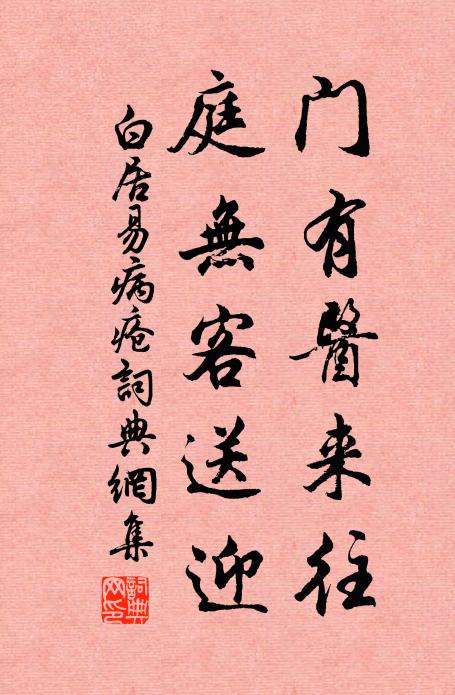 门有醫来往
庭無客送迎
白居易病瘡詞典網集
詞典
网印